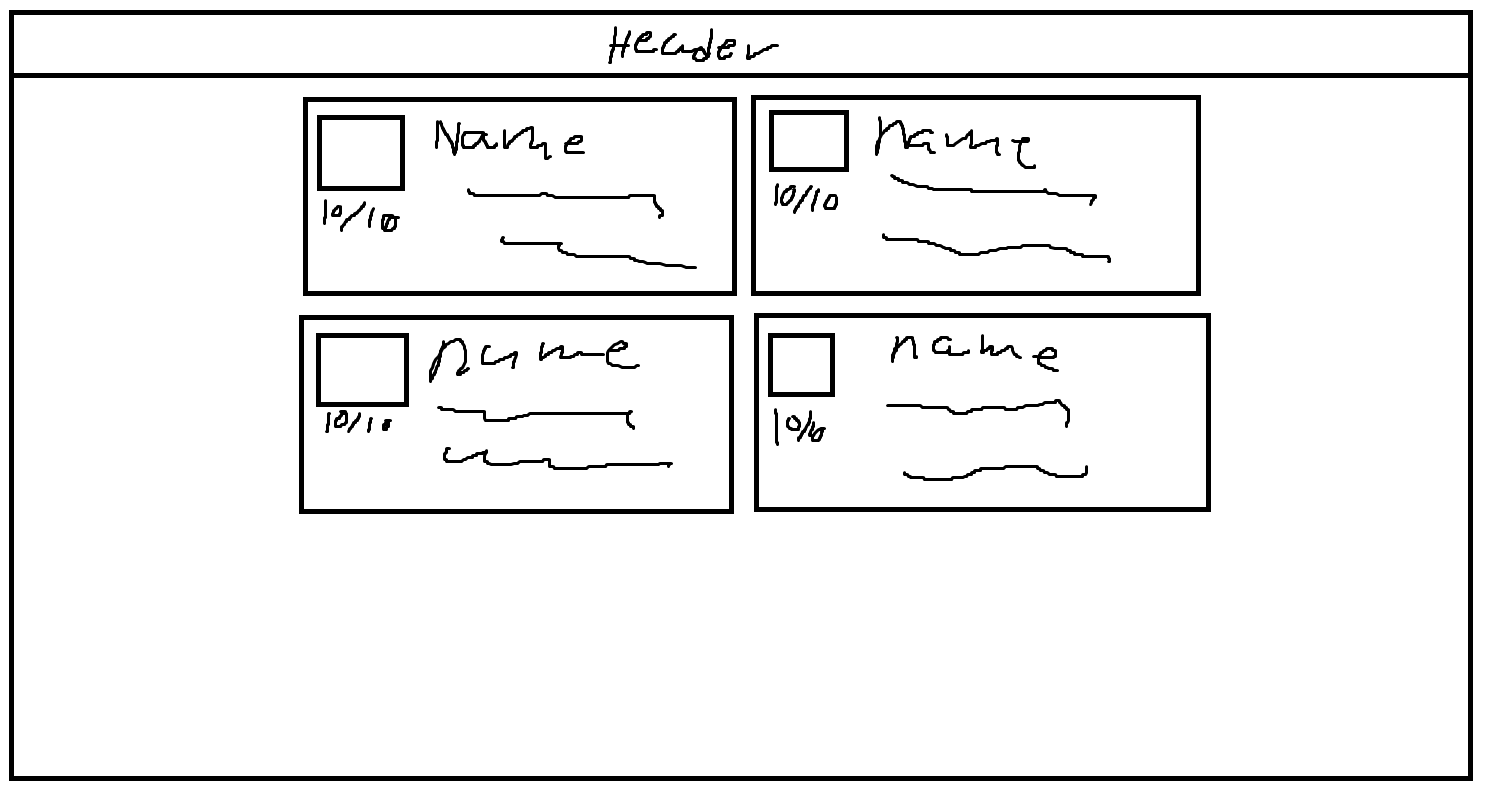 Header
Name
10/10
name
10/10
name
10/10
name
10/10